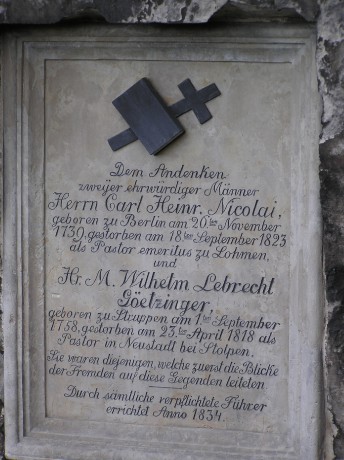 Dem Andenken
zweijer ehrwürdiger Männer
Herrn Carl Heinr. Nicolai,
geboren zu Berlin am 20.ten November
1739, gestorben am 18.ten September 1823
als Pastor emeritus zu Lohmen,
und
Hr. M. Wilhelm Lebrecht
Göetzinger,
geboren zu Struppen am 1.ten September
1758, gestorben am 23.ten April 1818 als
Pastor in Neustadt bei Stolpen.
Sie waren diejenigen, welche zuerst die Blicke
der Fremden auf diese Gegenden leiteten
Durch sämtliche verpflichtete Führer
errichtet Anno 1834.